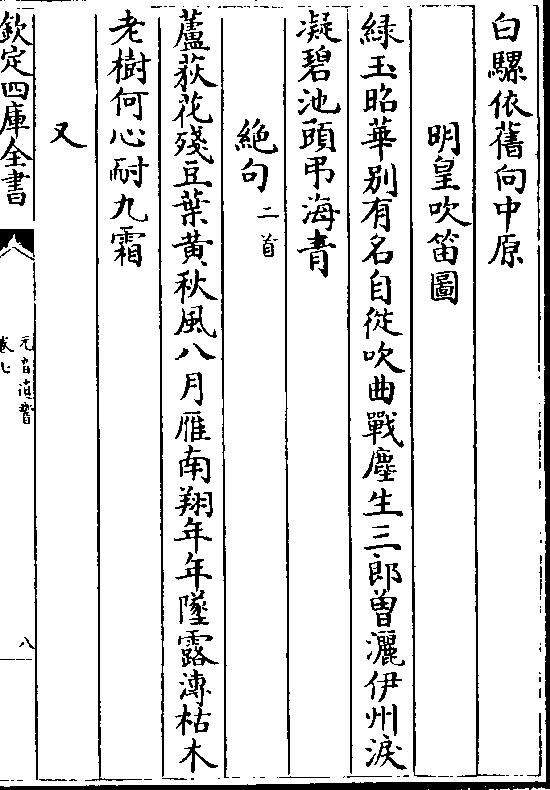 白騾依舊向中原
明皇吹笛圖
緑玉昭華别有名自從吹曲戰塵生三郎曽灑伊州淚
凝碧池頭弔海青
絶句二首
蘆荻花殘豆葉黄秋風八月雁南翔年年墜露漙枯木
老樹何心耐九霜
又
欽定四庫全書
元音遺響
卷七
八